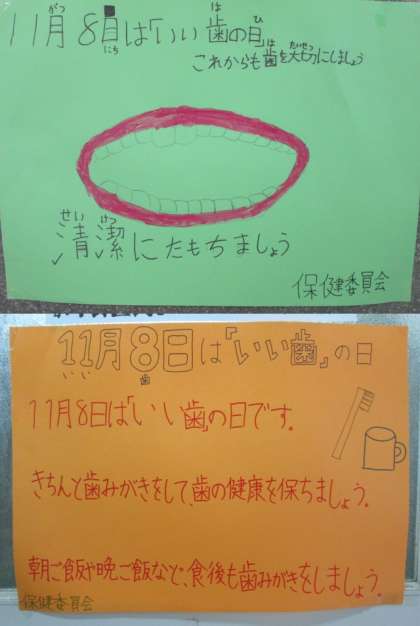 11月8日は「いい歯の日」
これからも歯を大切にしましょう
清潔にたもちましょう
保健委員会
11月8日は「いい歯」の日
11月8日は「いい歯」の日です。
きちんと歯みがきをして、歯の健康を保ちましょう。
朝ご飯や晩ご飯など、食後も歯みがきをしましょう。
保健委員会